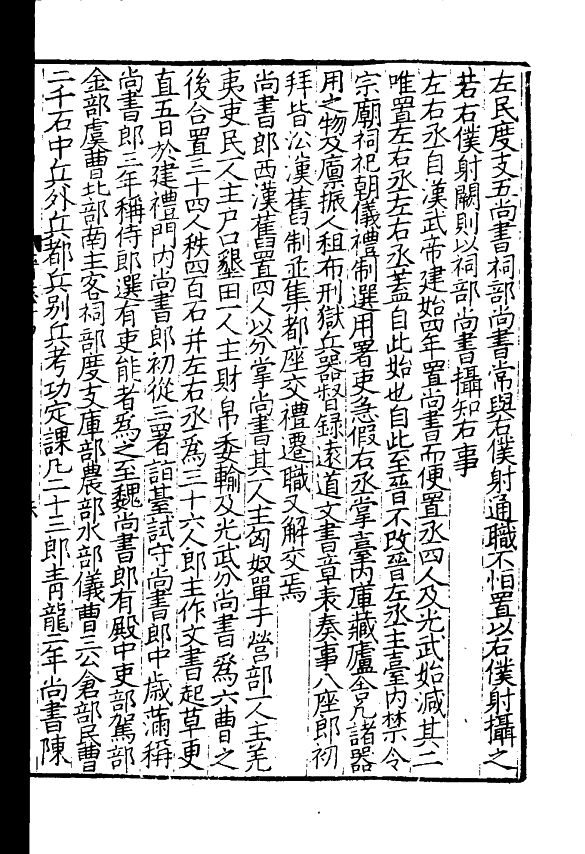 左民度支五尚書祠部尚書常與右僕射通職不恒置以右僕射攝之
若右僕射闕則以祠部尚書攝知右事
左右丞自漢武帝建始四年置尚書而便置丞四人及光武始減其二
唯置左右丞左右丞蓋自此始也自此至晉不改晉左丞主臺内禁令
宗廟祠祀朝儀禮制選用署吏急假右丞掌臺内庫藏廬舍凡諸器
用之物及廪振人租布刑獄兵器督録遠道文書章表奏事八座郎初
拜皆㳂漢舊制並集都座交禮遷職又解交焉
尚書郎西漢舊置四人以分掌尚書其一人主匈奴單于營部一人主羌
夷吏民一人主户口墾田一人主財帛委輸及光武分尚書爲六曹之
後合置三十四人秩四百石并左右丞爲三十六人郎主作文書起草更
直五日於建禮門内尚書郎初從三署詣臺試守尚書郎中歲滿稱
尚書郎三年稱侍郎選有吏能者爲之至魏尚書郎有殿中吏部駕部
金部虞曹比部南主客祠部度支庫部農部水部儀曹三公倉部民曹
二千石中兵外兵都兵别兵考功定課凡二十三郎青龍二年尚書陳